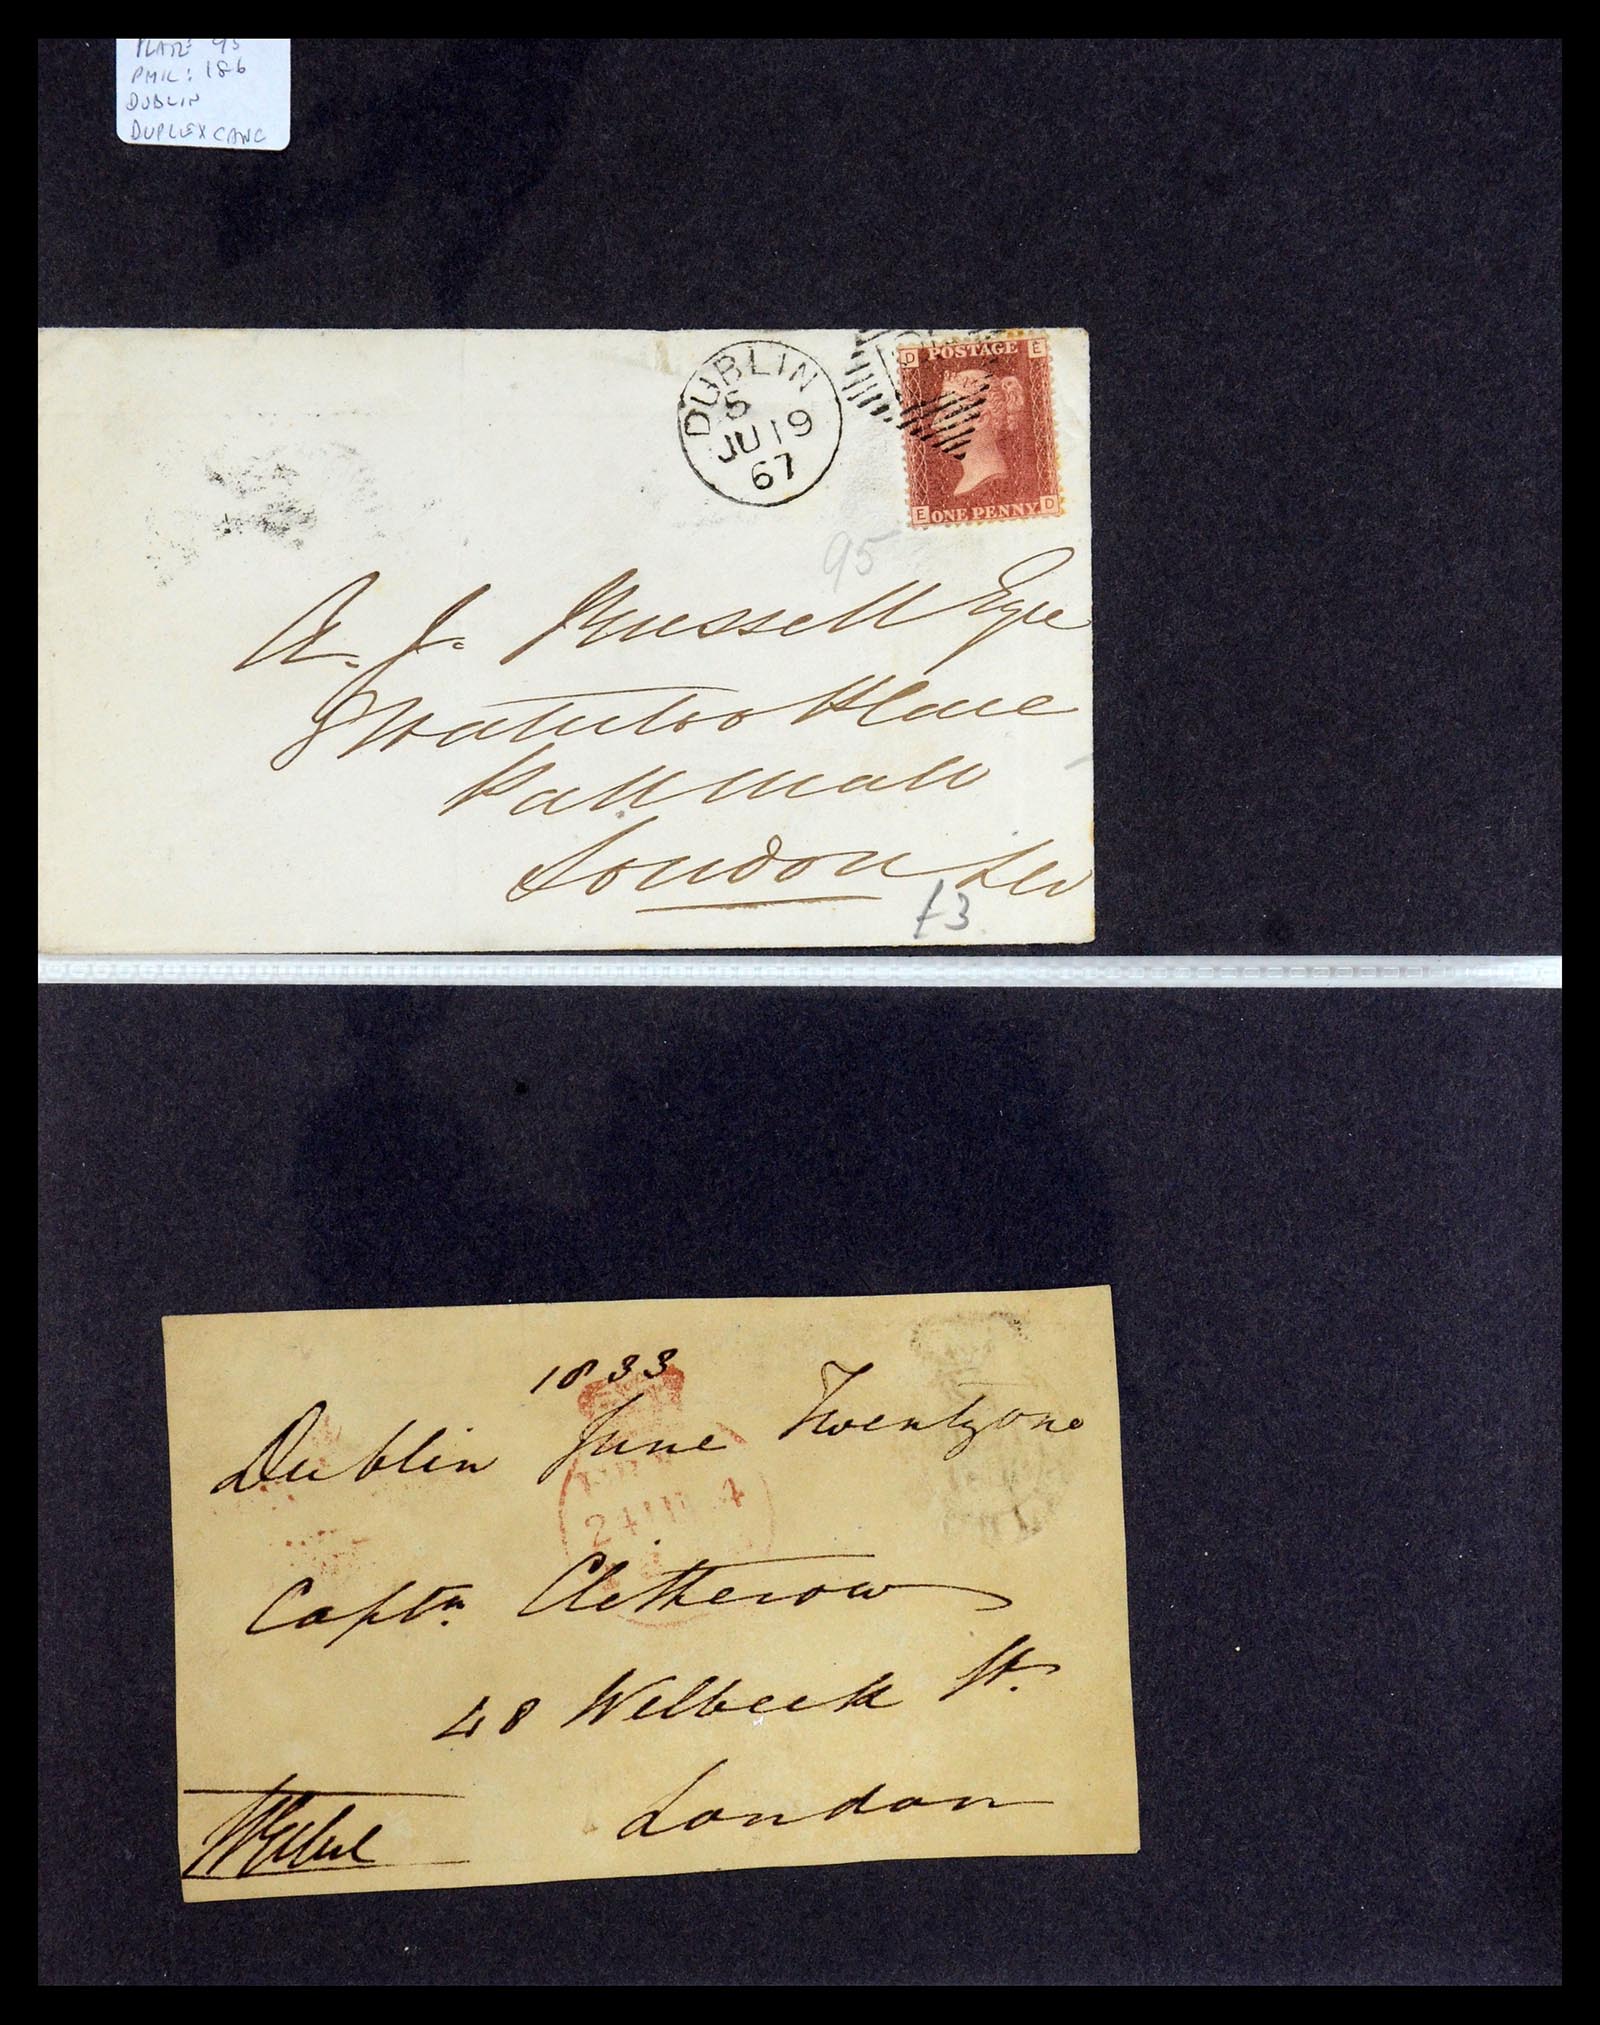 PLATE 95
PMK: 186
DUBLIN
DUPLEX CANC
DUBLIN
5
JU 19
67
D POSTAGE E
E ONE PENNY D
95
A. J. Russell Esqre
Waterloo Place
Pall Mall
London
£3
1833
Dublin June Twentyone
24 JU 24
Captn. Clitherow
48 Welbeck St.
London